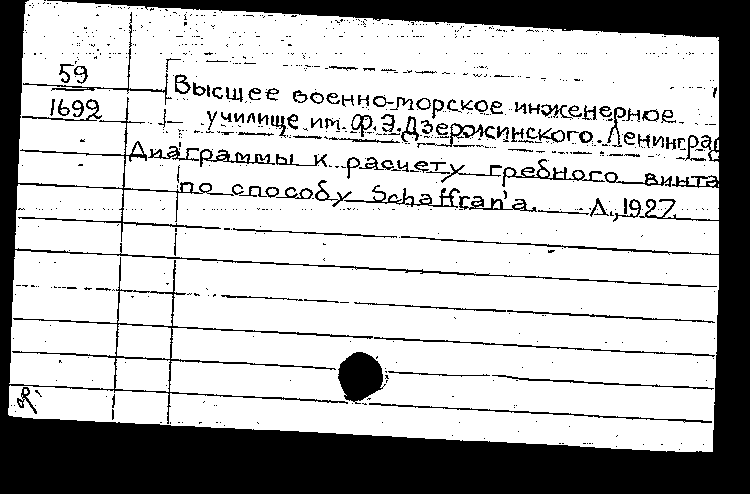 59
1692
Высшее военно-морское инженерное
училище им. Ф.Э.Дзержинского. Ленинград
Диаграммы к расчету гребного винта
по способу Schaffran'a. Л., 1927.